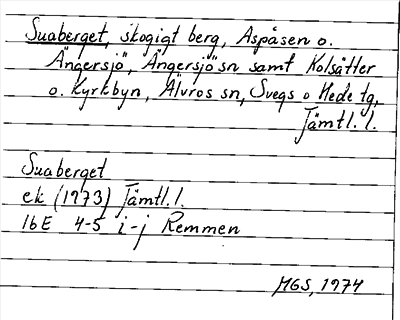 Suaberget, skogigt berg, Aspåsen o.
Ängersjö, Ängersjö sn samt Kolsätter
o. Kyrkbyn, Älvros sn, Svegs o Hede tg,
Jämtl. l.
Suaberget
ek (1973) Jämtl. l.
16E 4-5 i-j Remmen
MGS, 1974